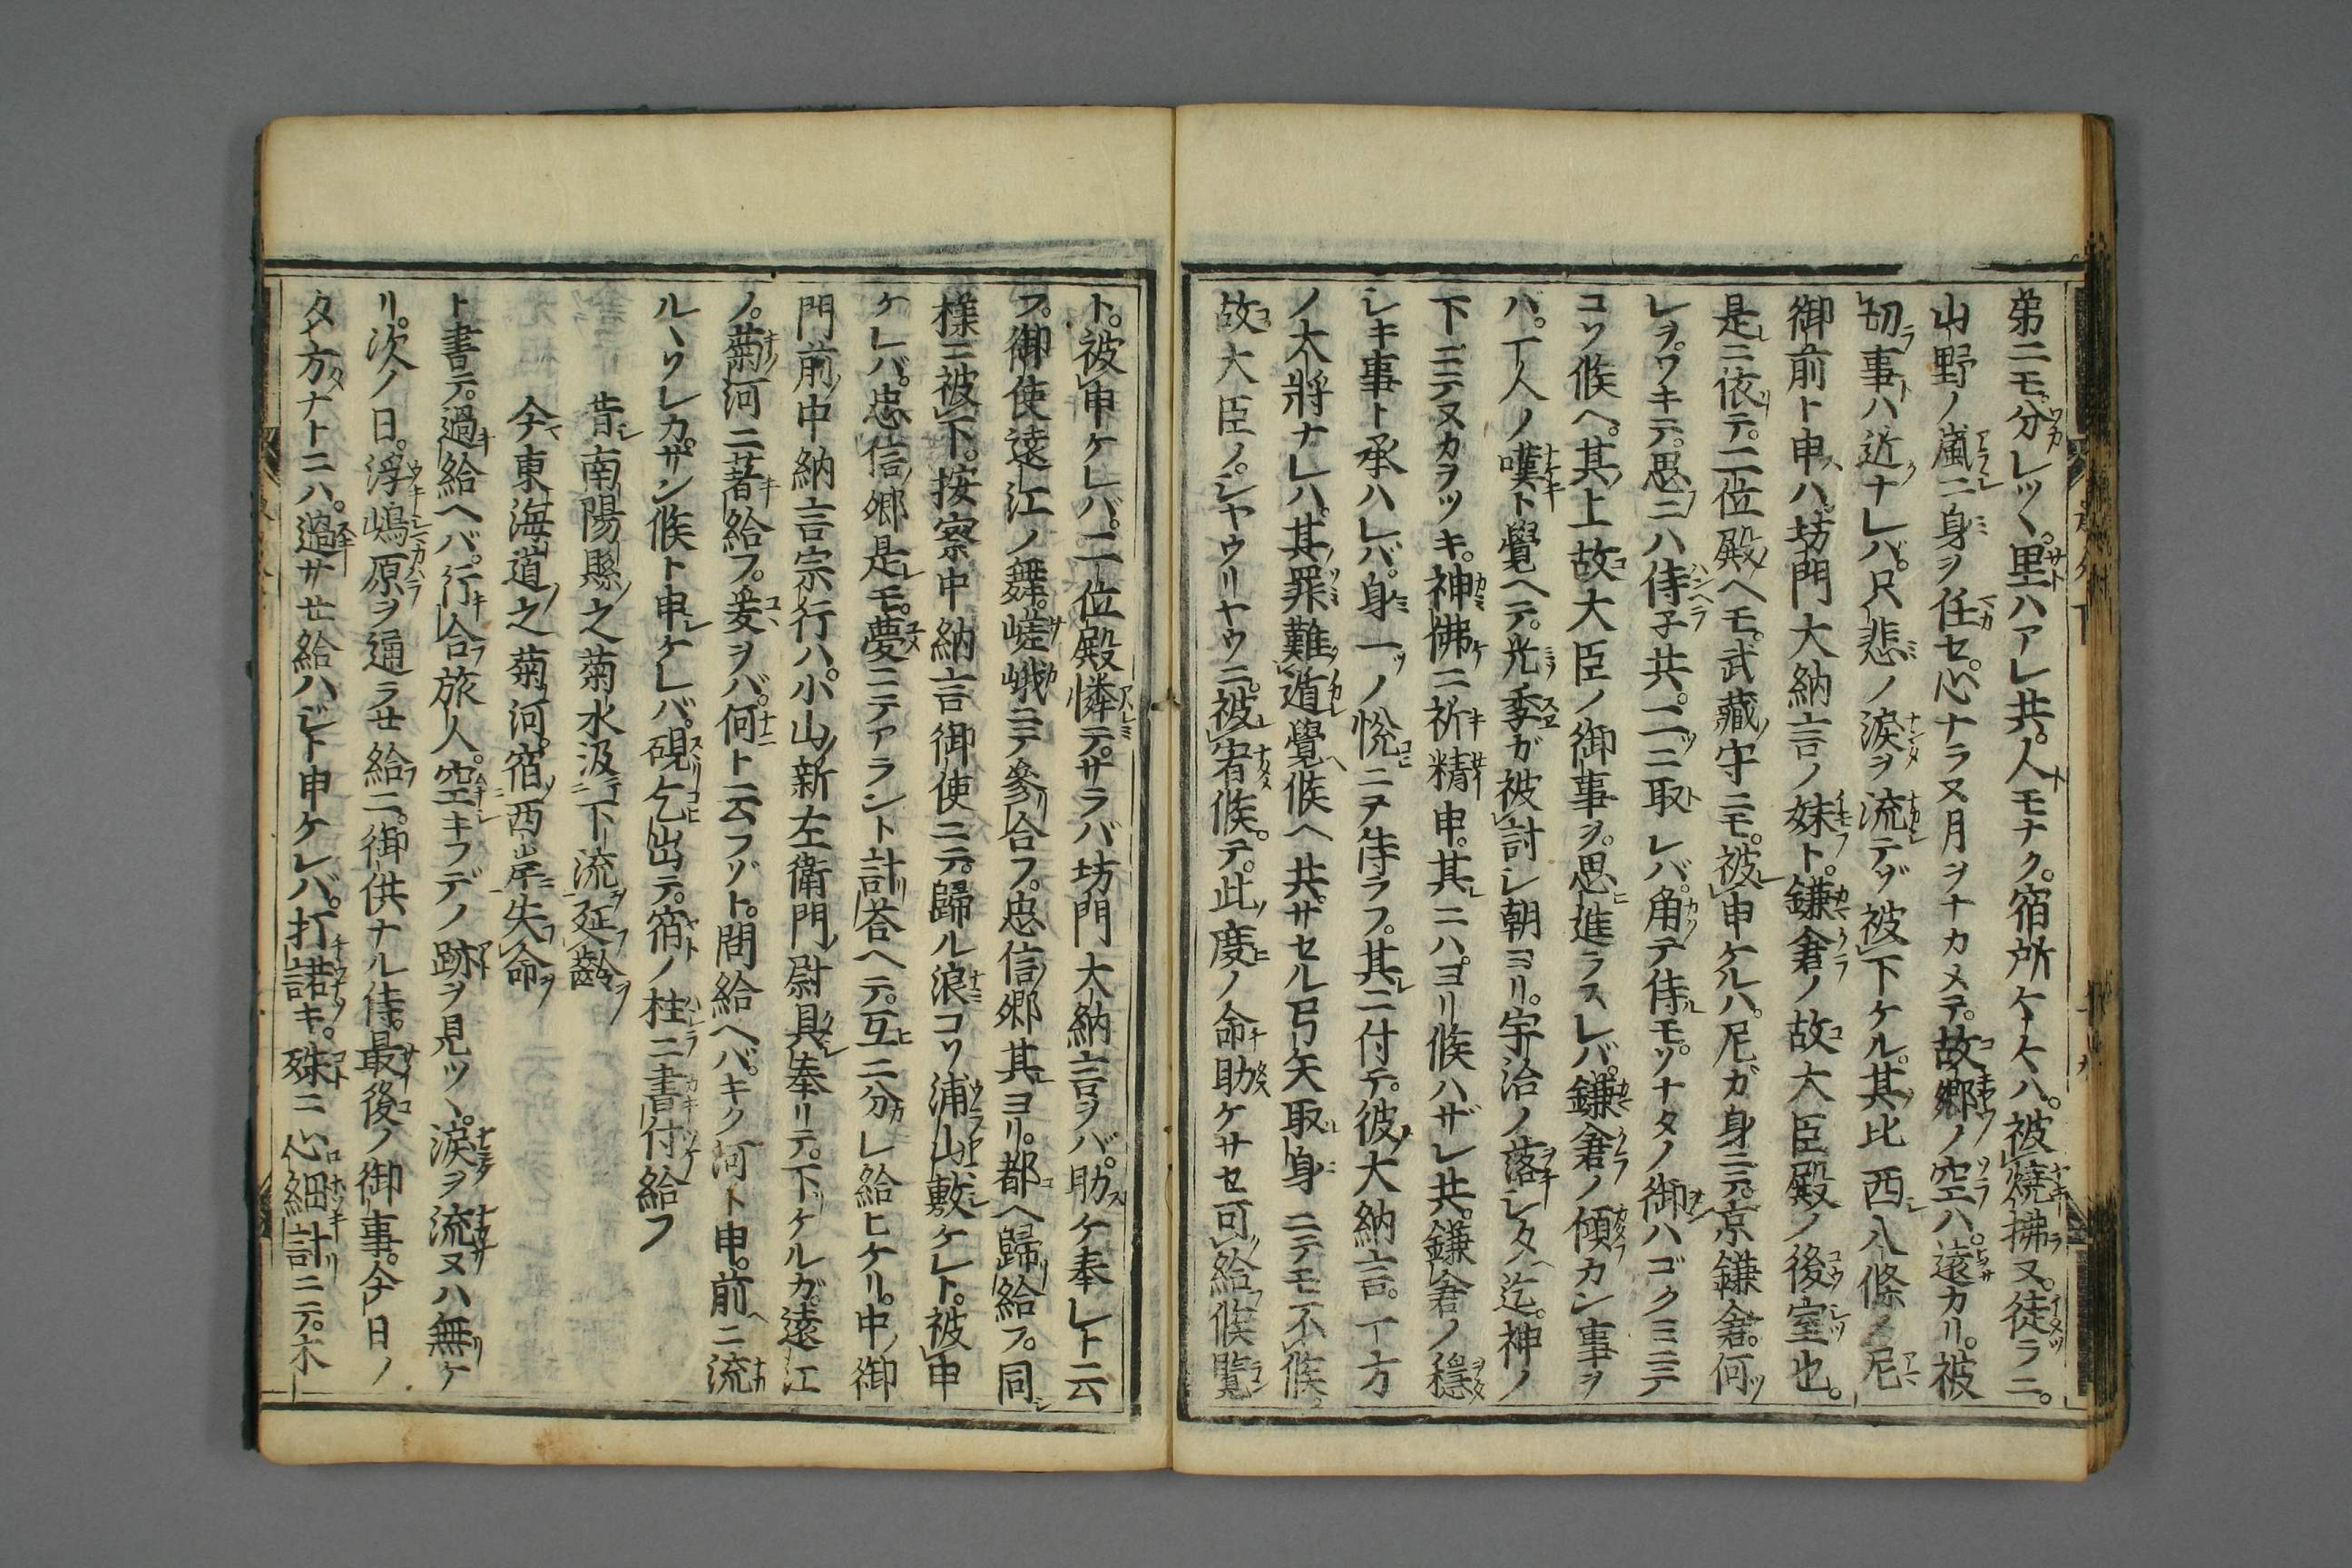 弟ニモ分レツヽ。里ハアレ共。人モナク。宿所ケヽハ。被燒拂ヌ。徒ラニ。
山野ノ嵐ニ身ヲ任セ。心ナラヌ月ヲナカメテ。故郷ノ空ハ。遠カリ。被
切事ハ近ナレバ。只悲ノ涙ヲ流テヅ被下ケル。其比西八條ノ尼
御前ト申ハ。坊門大納言ノ妹ト。鎌倉ノ故大臣殿ノ後室也。
是ニ依テ。二位殿ヘモ。武藏守ニモ。被申ケルハ。尼ガ身ニテ。京鎌倉。何
レヲ。ワキテ。思ニハ侍子共。一ニ取レバ。角テ侍モ。ソナタノ御ハゴクミニテ
コソ候ヘ。其上故大臣ノ御事ヲ。思進ラスレバ。鎌倉ノ傾カン事ヲ
バ。一人ノ嘆ト覺ヘテ。光季ガ被討シ朝ヨリ。宇治ノ落シタノ迄。神ノ
下ニテヌカヲツキ。神佛ニ祈精申。其ニハ。ヨリ候ハザレ共。鎌倉ノ穩
シキ事ト承ハレバ。身一ノ悅ニヲ侍ラフ。其ニ付テ。彼大納言。一方
ノ大將ナレハ。其罪難遁覺候ヘ共。サセル弓矢取身ニテモ不候。
故大臣ノ。シヤウリヤウニ。被宥候テ。此度ノ命助ケサセ可給候覽
ト。被申ケレバ。二位殿憐テ。サラバ坊門大納言ヲバ。助ケ奉レト云
フ。御使遠江ノ舞嵯峨ニテ參合フ。忠信郷其ヨリ。都ヘ歸給フ。同
樣ニ被下。按察中納言御使ニテ。歸ル浪コソ浦山敷ケレト。被申
ケレバ。忠信郷是モ。夢ニテアラント計答ヘテ。互ニ分レ給ヒケリ。中御
門前中納言宗行ハ。小山新左衞門尉具奉リテ。下ケルガ。遠江
ノ。菊河ニ著給フ。爰ヲバ。何ト云フゾト。問給ヘバ。キク河ト申。前ニ流
ルヽソレカ。サン候ト申ケレバ。硯乞出テ。宿ノ柱ニ書付給フ
昔南陽縣之菊水汲下流延齡
今東海道之菊河宿西岸失命
ト書テ。過給ヘバ。行合旅人。空キフデノ跡ヲ見ツヽ。涙ヲ流ヌハ無ケ
リ。次ノ日。浮嶋原ヲ通ラセ給ニ。御供ナル侍。最後ノ御事。今日ノ
夕方ナトニハ。過サセ給ハジト申ケレバ。打諾キ。殊ニ心細計ニテ。木